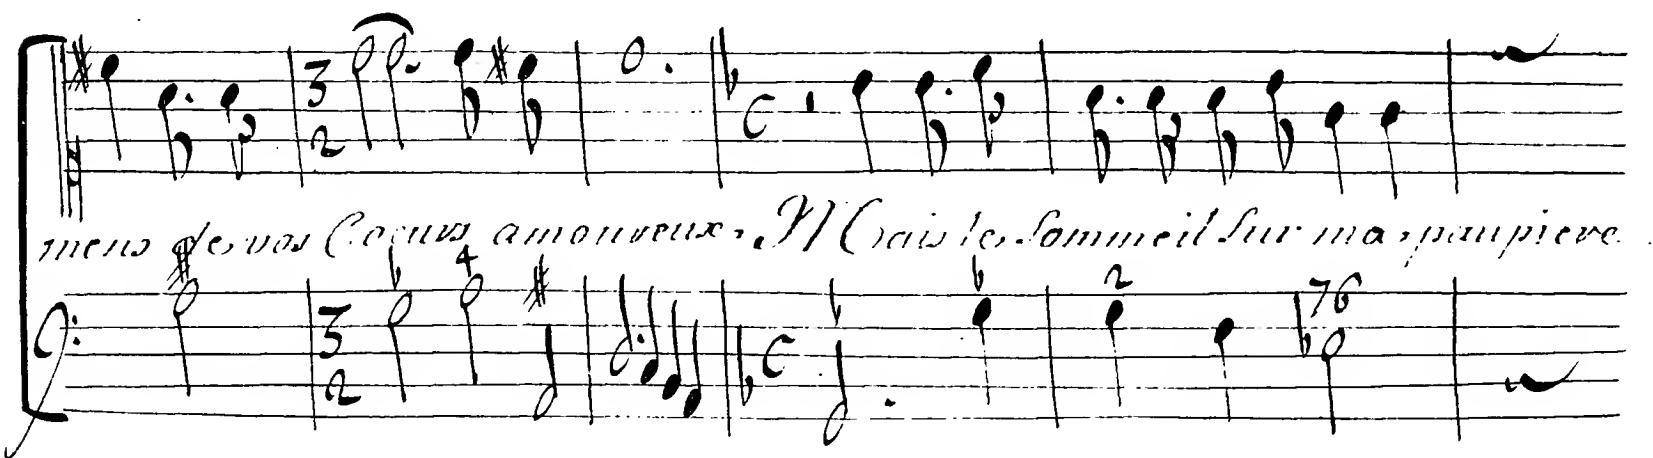 mens de vos Coeurs amoureux. Mais le Sommeil Sur ma paupiere